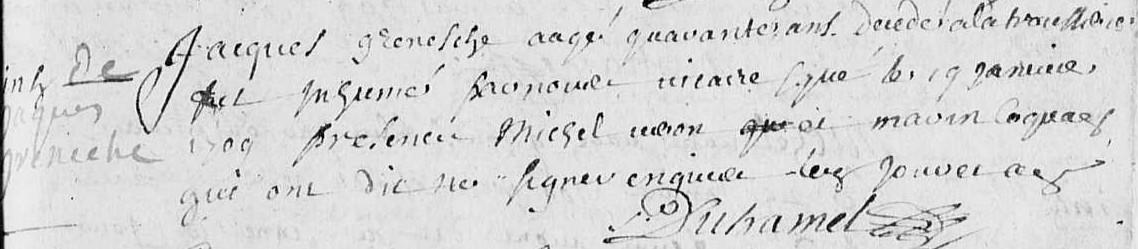 inh de
Jacques
greneche
Jacques grenesche aagé quarante ans decedé a la
fut Inhumé par nous vicaire le 19 Janvier
1709 presence Michel veron et marin
qui ont dit ne signer enquis les jour et an
Duhamel